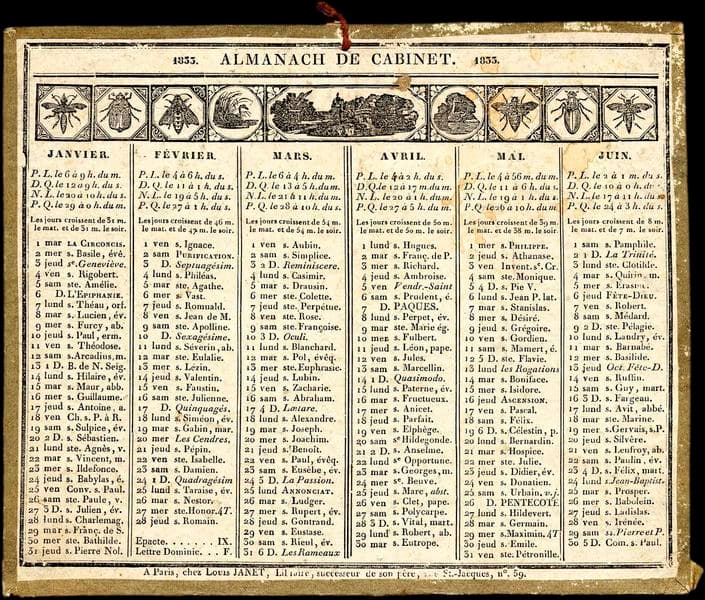 1833. ALMANACH DE CABINET. 1833.
JANVIER.
P. L. le 6 à 9 h. du m.
D. Q. le 12 à 9 h. du s.
N. L. le 20 à 10 h. du s.
P. Q. le 29 à 0 h. du m.
Les jours croissent de 31 m.
le mat. et de 31 m. le soir.
1 mar LA CIRCONCIS.
2 mer s. Basile, évê.
3 jeud ste. Geneviève.
4 ven s. Rigobert.
5 sam ste. Amélie.
6 D. L'EPIPHANIE.
7 lund s. Théau, orf.
8 mar s. Lucien, év.
9 mer s. Furcy, ab.
10 jeud s. Paul, erm.
11 ven s. Théodose.
12 sam s. Arcadius, m.
13 1 D. B. de N. Seig.
14 lund s. Hilaire, év.
15 mar s. Maur, abb.
16 mer s. Guillaume.
17 jeud s. Antoine, a.
18 ven Ch. s. P. à R.
19 sam s. Sulpice, év.
20 2 D. s. Sébastien.
21 lund ste. Agnès, v.
22 mar s. Vincent, m.
23 mer s. Ildefonce.
24 jeud s. Babylas, é.
25 ven Conv. s. Paul.
26 sam ste. Paule, v.
27 3 D. s. Julien, év.
28 lund s. Charlemag.
29 mar s. Franç. de S.
30 mer ste. Bathilde.
31 jeud s. Pierre Nol.
FÉVRIER.
P. L. le 4 à 6 h. du s.
D. Q. le 11 à 1 h. du s.
N. L. le 19 à 5 h. du s.
P. Q. le 27 à 1 h. du s.
Les jours croissent de 46 m.
le mat. et de 47 m. le soir.
1 ven s. Ignace.
2 sam PURIFICATION.
3 D. Septuagésim.
4 lund s. Philéas.
5 mar ste. Agathe.
6 mer s. Vast.
7 jeud s. Romuald.
8 ven s. Jean de M.
9 sam ste. Apolline.
10 D. Sexagésime.
11 lund s. Séverin, ab.
12 mar ste. Eulalie.
13 mer s. Lézin.
14 jeud s. Valentin.
15 ven s. Faustin.
16 sam ste. Julienne.
17 D. Quinquagés.
18 lund s. Siméon, év.
19 mar s. Gabin, mar.
20 mer Les Cendres.
21 jeud s. Pépin.
22 ven ste. Isabelle.
23 sam s. Damien.
24 1 D. Quadragésim
25 lund s. Taraise, év.
26 mar s. Nestor.
27 mer ste. Honor. 4T.
28 jeud s. Romain.
Epacte. . . . . . . IX.
Lettre Dominic. . . F.
MARS.
P. L. le 6 à 4 h. du m.
D. Q. le 13 à 5 h. du m.
N. L. le 21 à 11 h. du m.
P. Q. le 28 à 10 h. du s.
Les jours croissent de 54 m.
le mat. et de 54 m. le soir.
1 ven s. Aubin.
2 sam s. Simplice.
3 2 D. Reminiscere.
4 lund s. Casimir.
5 mar s. Drausin.
6 mer ste. Colette.
7 jeud ste. Perpétue.
8 ven ste. Rose.
9 sam ste. Françoise.
10 3 D. Oculi.
11 lund s. Blanchard.
12 mar s. Pol, évêq.
13 mer ste. Euphrasie.
14 jeud s. Lubin.
15 ven s. Zacharie.
16 sam s. Abraham.
17 4 D. Lœtare.
18 lund s. Alexandre.
19 mar s. Joseph.
20 mer s. Joachim.
21 jeud s. Benoît.
22 ven s. Paul, évêq.
23 sam s. Eusèbe, év.
24 5 D. La Passion.
25 lund ANNONCIAT.
26 mar s. Ludger.
27 mer s. Rupert, év.
28 jeud s. Gontrand.
29 ven s. Eustase.
30 sam s. Rieul, év.
31 6 D. Les Rameaux
AVRIL.
P. L. le 4 à 2 h. du s.
D. Q. le 12 à 17 m. du m.
N. L. le 20 à 1 h. du m.
P. Q. le 27 à 5 h. du m.
Les jours croissent de 50 m.
le mat. et de 50 m. le soir.
1 lund s. Hugues.
2 mar s. Franç. de P.
3 mer s. Richard.
4 jeud s. Ambroise.
5 ven Vendr.-Saint
6 sam s. Prudent, é.
7 D. PAQUES.
8 lund s. Perpet, év.
9 mar ste. Marie ég.
10 mer s. Fulbert.
11 jeud s. Léon, pape.
12 ven s. Jules.
13 sam s. Marcellin.
14 1 D. Quasimodo.
15 lund s. Paterne, év.
16 mar s. Fructueux.
17 mer s. Anicet.
18 jeud s. Parfait.
19 ven s. Elphège.
20 sam se Hildegonde.
21 2 D. s. Anselme.
22 lund se Opportune.
23 mar s. Georges, m.
24 mer se. Beuve.
25 jeud s. Marc, abst.
26 ven s. Clet, pape.
27 sam s. Polycarpe.
28 3 D. s. Vital, mart.
29 lund s. Robert, ab.
30 mar s. Eutrope.
MAI.
P. L. le 4 à 56 m. du m.
D. Q. le 11 à 6 h. du s.
N. L. le 19 à 1 h. du s.
P. Q. le 26 à 10 h. du m.
Les jours croissent de 39 m.
le mat. et de 38 m. le soir.
1 mer s. PHILIPPE.
2 jeud s. Athanase.
3 ven Invent. se. Cr.
4 sam ste. Monique.
5 4 D. s. Pie V.
6 lund s. Jean P. lat.
7 mar s. Stanislas.
8 mer s. Désiré.
9 jeud s. Grégoire.
10 ven s. Gordien.
11 sam s. Mamert, é.
12 5 D. ste. Flavie.
13 lund les Rogations
14 mar s. Boniface.
15 mer s. Isidore.
16 jeud ASCENSION.
17 ven s. Pascal.
18 sam s. Félix.
19 6 D. s. Célestin, p.
20 lund s. Bernardin.
21 mar s. Hospice.
22 mer ste. Julie.
23 jeud s. Didier, év.
24 ven s. Donatien.
25 sam s. Urbain, v.j.
26 D. PENTECOTE
27 lund s. Hildevert.
28 mar s. Germain.
29 mer s. Maximin. 4T
30 jeud s. Emile.
31 ven ste. Pétronille.
JUIN.
P. L. le 2 à 1 m. du s.
D. Q. le 10 à 0 h. du
N. L. le 17 à 11 h.
P. Q. le 24 à 3 h. du s.
Les jours croissent de 8 m.
le mat. et de 7 m. le soir.
1 sam s. Pamphile.
2 1 D. La Trinité.
3 lund ste. Clotilde.
4 mar s. Quirin, m.
5 mer s. Erasme.
6 jeud FÊTE-DIEU.
7 ven s. Robert.
8 sam s. Médard.
9 2 D. ste. Pélagie.
10 lund s. Landry, év.
11 mar s. Barnabé.
12 mer s. Basilide.
13 jeud Oct. Fête-D.
14 ven s. Ruffin.
15 sam s. Guy, mart.
16 3 D. s. Fargeau.
17 lund s. Avit, abbé.
18 mar ste. Marine.
19 mer s. Gervais, s. P.
20 jeud s. Silvère.
21 ven s. Leufroy, ab.
22 sam s. Paulin, év.
23 4 D. s. Félix, mart.
24 lund s. Jean-Baptist.
25 mar s. Prosper.
26 mer s. Babolein.
27 jeud s. Ladislas.
28 ven s. Irénée.
29 sam ss. Pierre et P.
30 5 D. Com. s. Paul.
A Paris, chez Louis JANET, Libraire, successeur de son père, rue St.-Jacques, n°. 59.